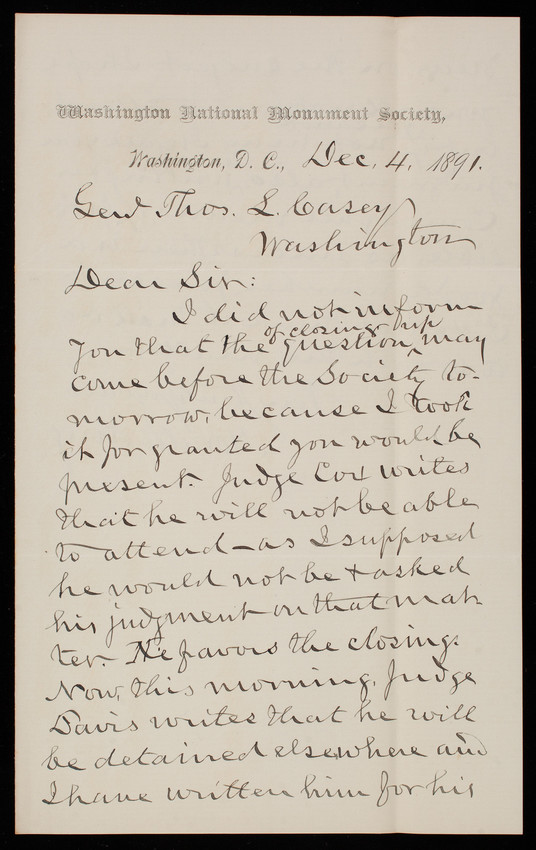 Washington National Monument Society,
Washington, D. C., Dec. 4, 1891.
Genl Thos. L. Casey
Washington
Dear Sir:
I did not inform
you that the question of closing up may
come before the Society to-
morrow, because I took
it for granted you would be
present. Judge Cox writes
that he will not be able
to attend - as I supposed
he would not be & asked
his judgment on that mat-
ter. He favors the closing.
Now, this morning, Judge
Davis writes that he will
be detained elsewhere and
I have written him for his